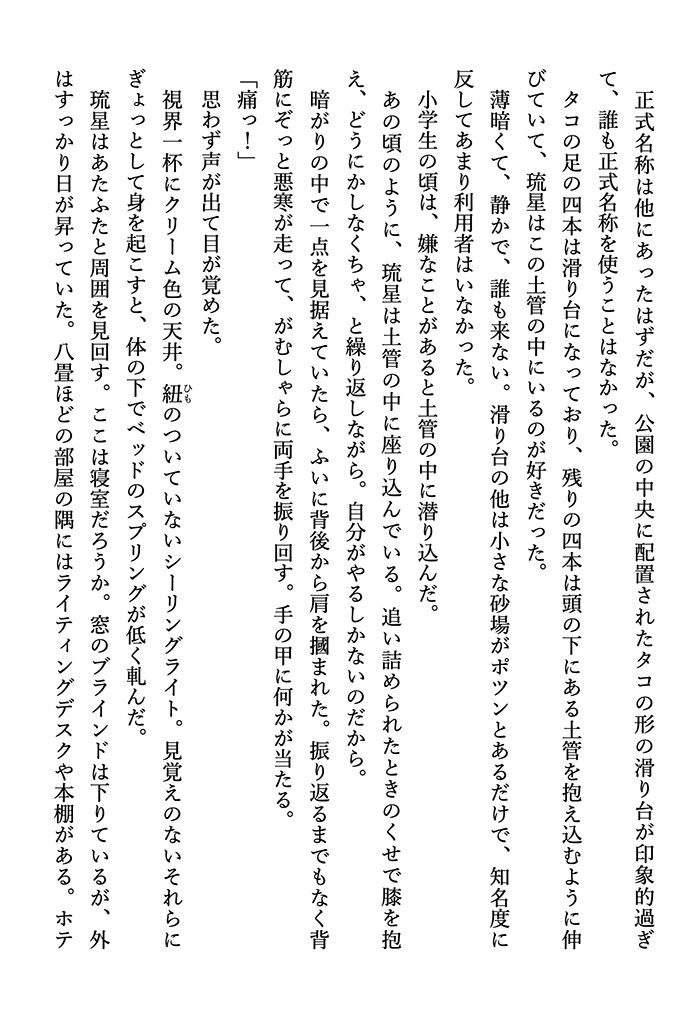 正式名称は他にあったはずだが、公園の中央に配置されたタコの形の滑り台が印象的過ぎ
て、誰も正式名称を使うことはなかった。
　タコの足の四本は滑り台になっており、残りの四本は頭の下にある土管を抱え込むように伸
びていて、琉星はこの土管の中にいるのが好きだった。
　薄暗くて、静かで、誰も来ない。滑り台の他は小さな砂場がポツンとあるだけで、知名度に
反してあまり利用者はいなかった。
　小学生の頃は、嫌なことがあると土管の中に潜り込んだ。
　あの頃のように、琉星は土管の中に座り込んでいる。追い詰められたときのくせで膝を抱
え、どうにかしなくちゃ、と繰り返しながら。自分がやるしかないのだから。
　暗がりの中で一点を見据えていたら、ふいに背後から肩を摑まれた。振り返るまでもなく背
筋にぞっと悪寒が走って、がむしゃらに両手を振り回す。手の甲に何かが当たる。
「痛っ！」
　思わず声が出て目が覚めた。
　視界一杯にクリーム色の天井。紐ひものついていないシーリングライト。見覚えのないそれらに
ぎょっとして身を起こすと、体の下でベッドのスプリングが低く軋んだ。
　琉星はあたふたと周囲を見回す。ここは寝室だろうか。窓のブラインドは下りているが、外
はすっかり日が昇っていた。八畳ほどの部屋の隅にはライティングデスクや本棚がある。ホテ